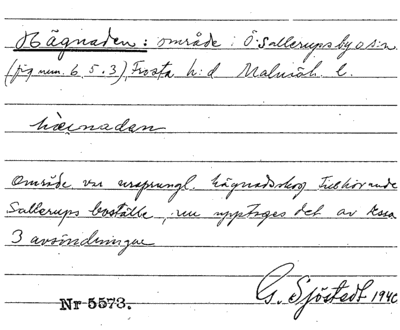 Hägnaden: område i Ö. Sallerups by o s:n
(fig num. 6, 5, 3), Frosta h:d Malmöh. l.
hägnaden
Område var ursprungl. hägnadsskog tillhörande
Sallerups boställe, nu upptages det av
3 avsöndringar
Nr 5573.
G. Sjöstedt 1940